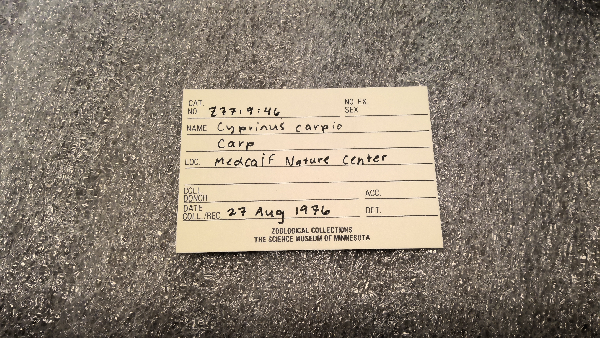 CAT. NO. Z77:9:46 NO. EX. SEX
NAME Cyprinus carpio
Carp
LOC. Medcalf Nature Center
COLL. DONOR ACC.
DATE COLL./REC. 27 Aug 1976 DET.
ZOOLOGICAL COLLECTIONS
THE SCIENCE MUSEUM OF MINNESOTA